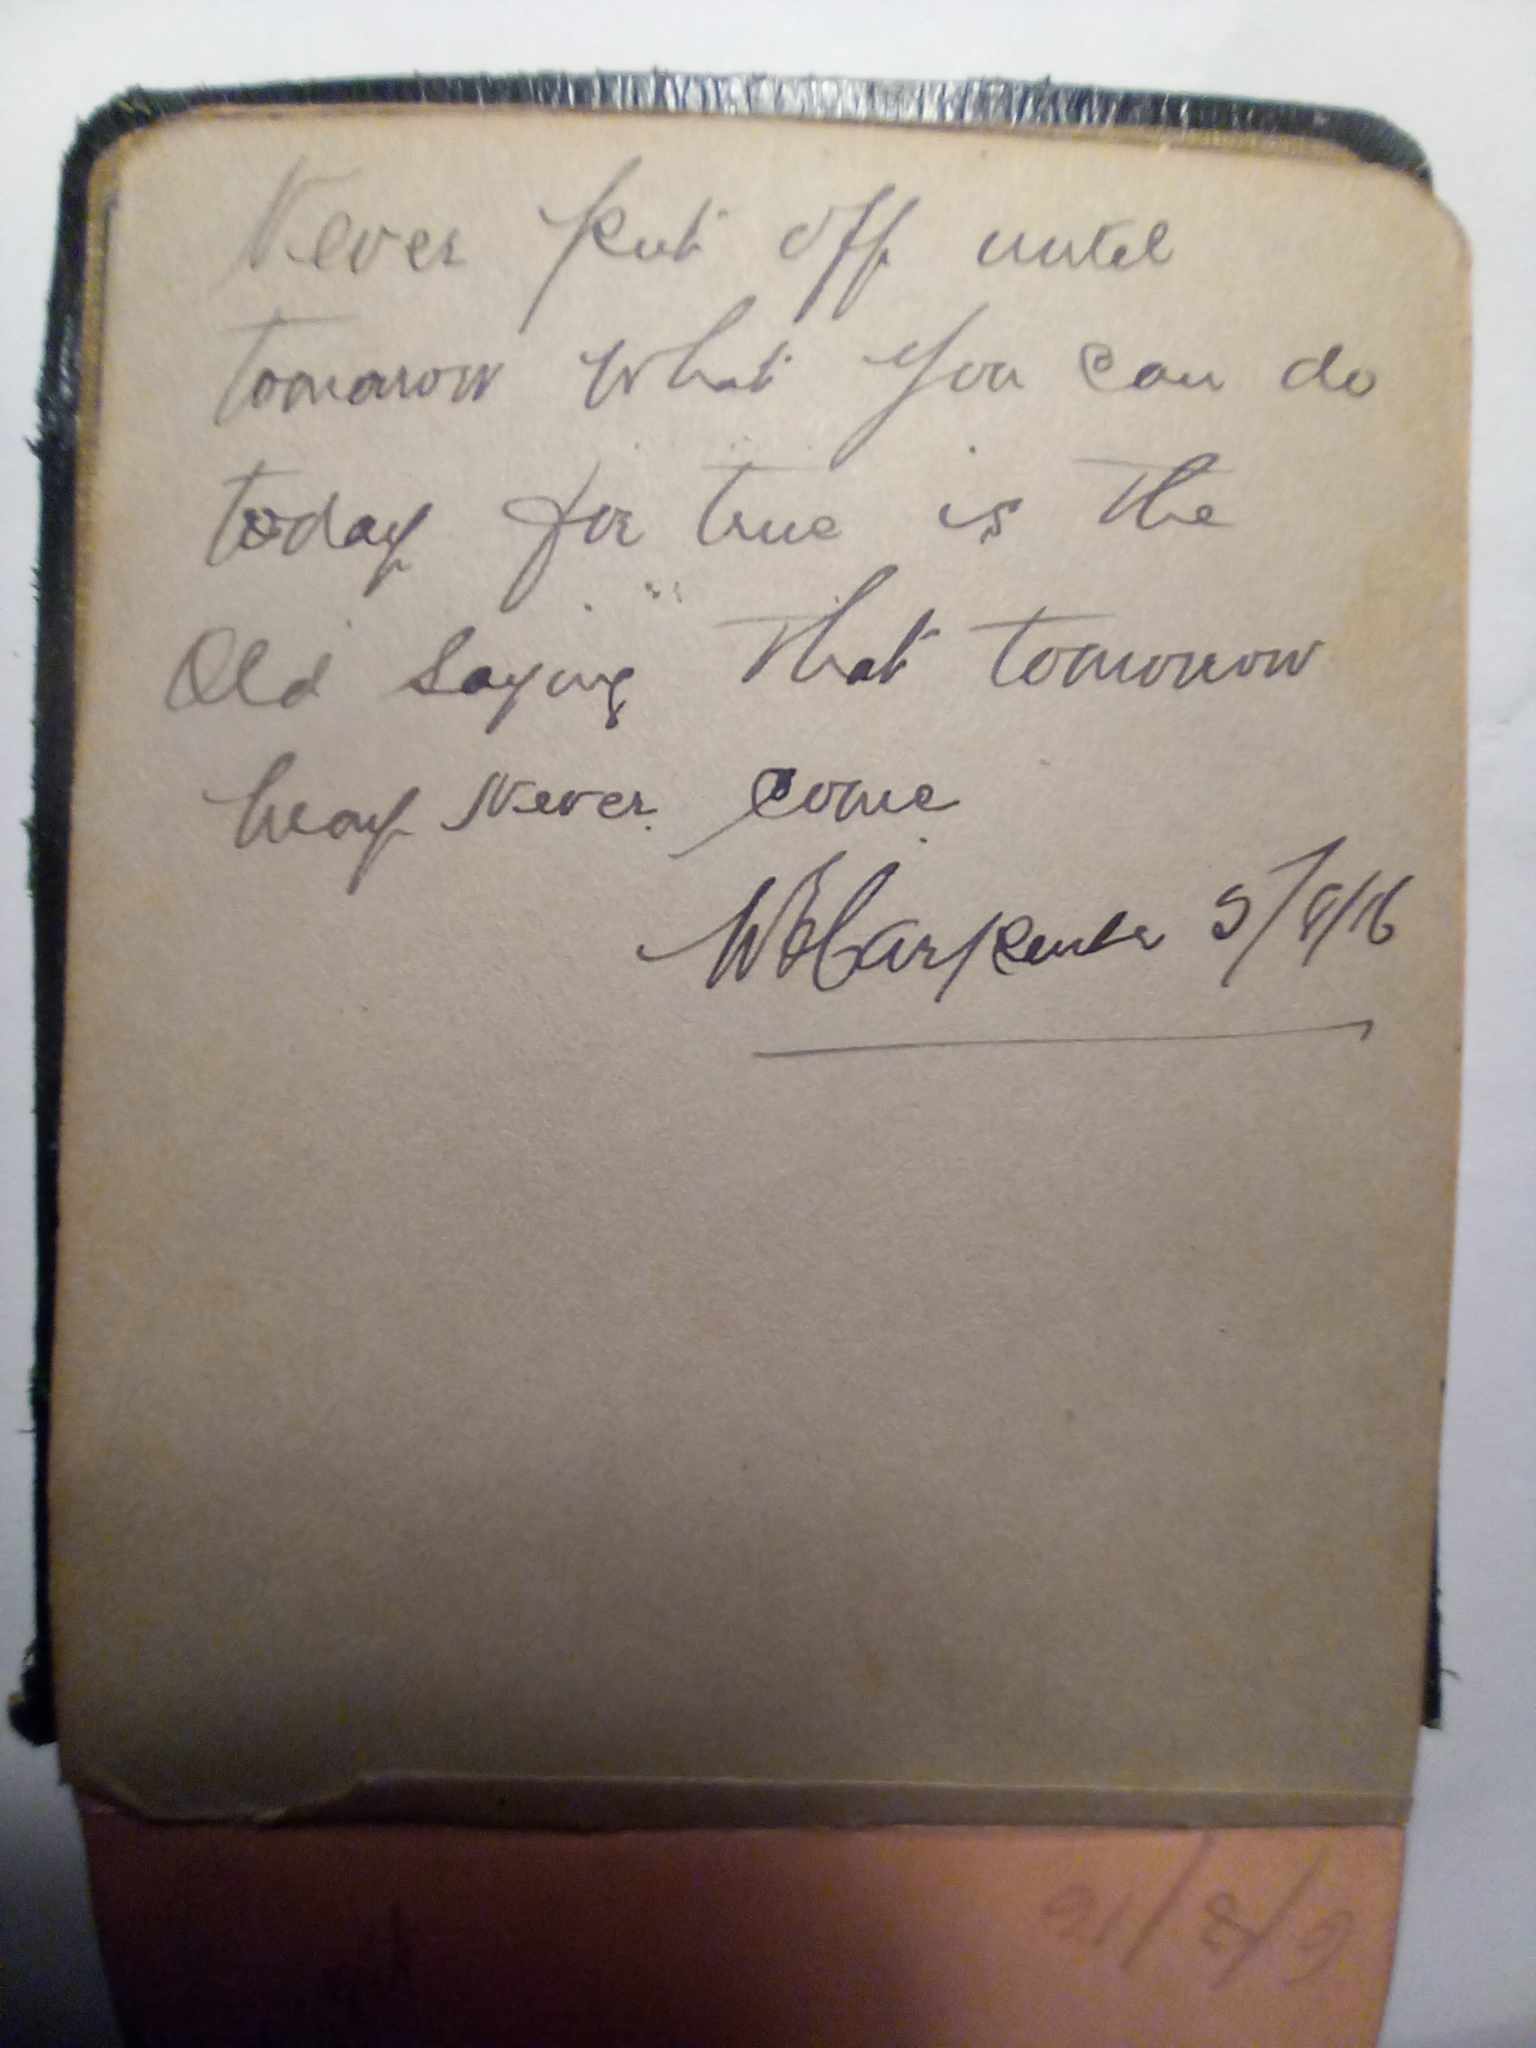 Never put off until
tomorrow what you can do
today for true is the
Old saying that tomorrow
may Never come
WB Carpenter 5/8/16
6/8/16